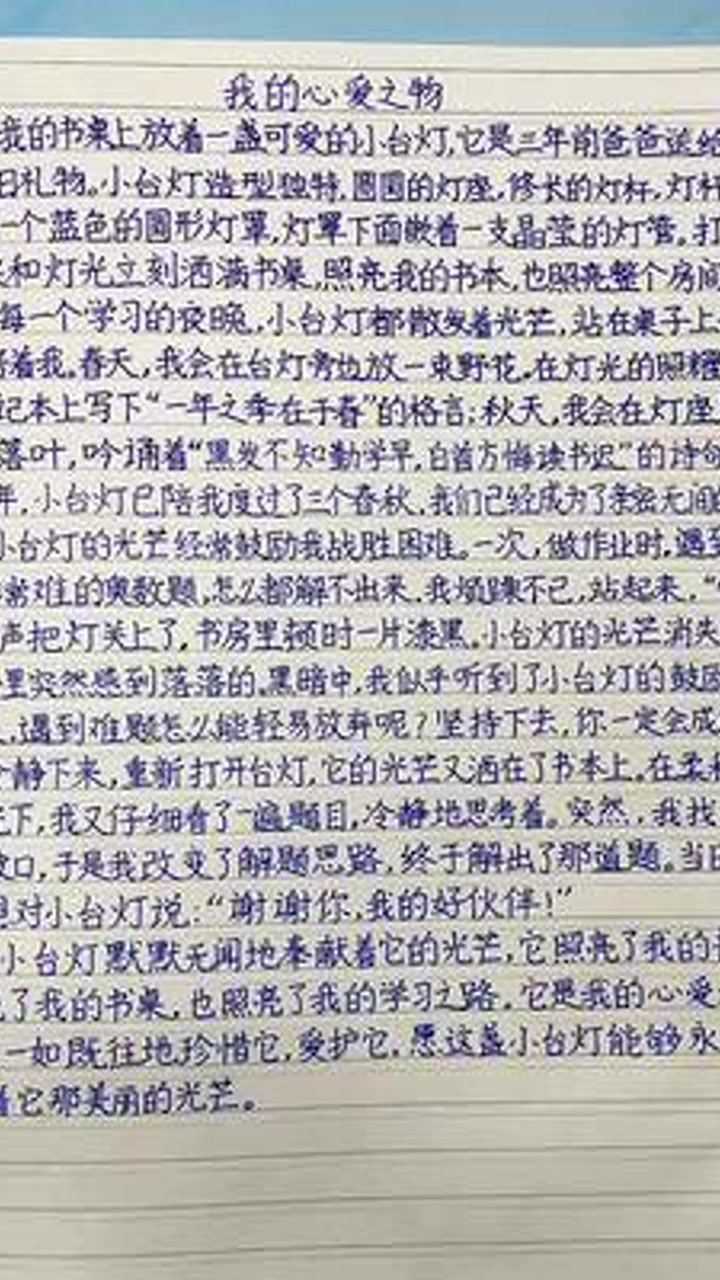 我的心爱之物
我的书桌上放着一盏可爱的小台灯,它是三年前爸爸送给
日礼物。小台灯造型独特,圆圆的灯座,修长的灯杆,灯杆
一个蓝色的圆形灯罩,灯罩下面嵌着一支晶莹的灯管。打
和灯光立刻洒满书桌,照亮我的书本,也照亮整个房间
每一个学习的夜晚,小台灯都散发着光芒,站在桌子上
着我。春天,我会在台灯旁边放一束野花。在灯光的照耀
记本上写下“一年之季在于春”的格言;秋天,我会在灯座
落叶,吟诵着“黑发不知勤学早,白首方悔读书迟”的诗句
年,小台灯已陪我度过了三个春秋,我们已经成为了亲密无间
小台灯的光芒经常鼓励我战胜困难。一次,做作业时,遇到
常难的奥数题,怎么都解不出来,我烦躁不已,站起来,“
声把灯关上了,书房里顿时一片漆黑。小台灯的光芒消失
里突然感到落落的。黑暗中,我似乎听到了小台灯的鼓励
,遇到难题怎么能轻易放弃呢?坚持下去,你一定会成
静下来,重新打开台灯,它的光芒又洒在了书本上。在柔
下,我又仔细看了一遍题目,冷静地思考着。突然,我找
口,于是我改变了解题思路,终于解出了那道题。当
对小台灯说:“谢谢你,我的好伙伴!”
小台灯默默无闻地奉献着它的光芒,它照亮了我的
了我的书桌,也照亮了我的学习之路。它是我的心爱
一如既往地珍惜它,爱护它。愿这盏小台灯能够永
着它那美丽的光芒。